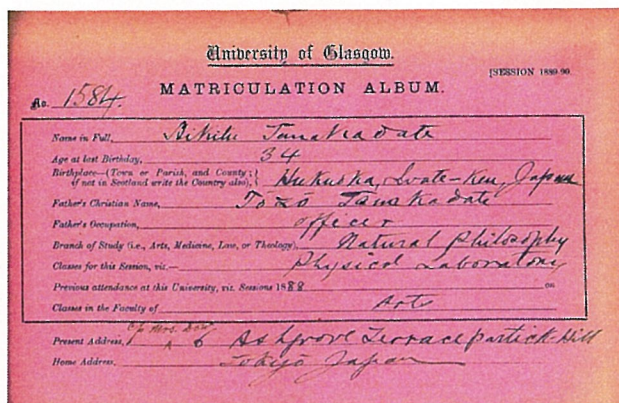 University of Glasgow.
[SESSION 1889-90.
MATRICULATION ALBUM.
No. 1584.
Name in Full, Aikitu Tanakadate
Age at last Birthday, 34
Birthplace—(Town or Parish, and County;
if not in Scotland write the Country also), Hukuoka, Iwate-Ken, Japan
Father's Christian Name, Tozo Tanakadate
Father's Occupation, officer
Branch of Study (i.e., Arts, Medicine, Law, or Theology), Natural Philosophy
Classes for this Session, viz.— Physical Laboratory
Previous attendance at this University, viz. Sessions 1888 on
Classes in the Faculty of Arts
Present Address, c/o Mrs. 6 Ashgrove Terrace Partick-Hill
Home Address, Tokyo Japan